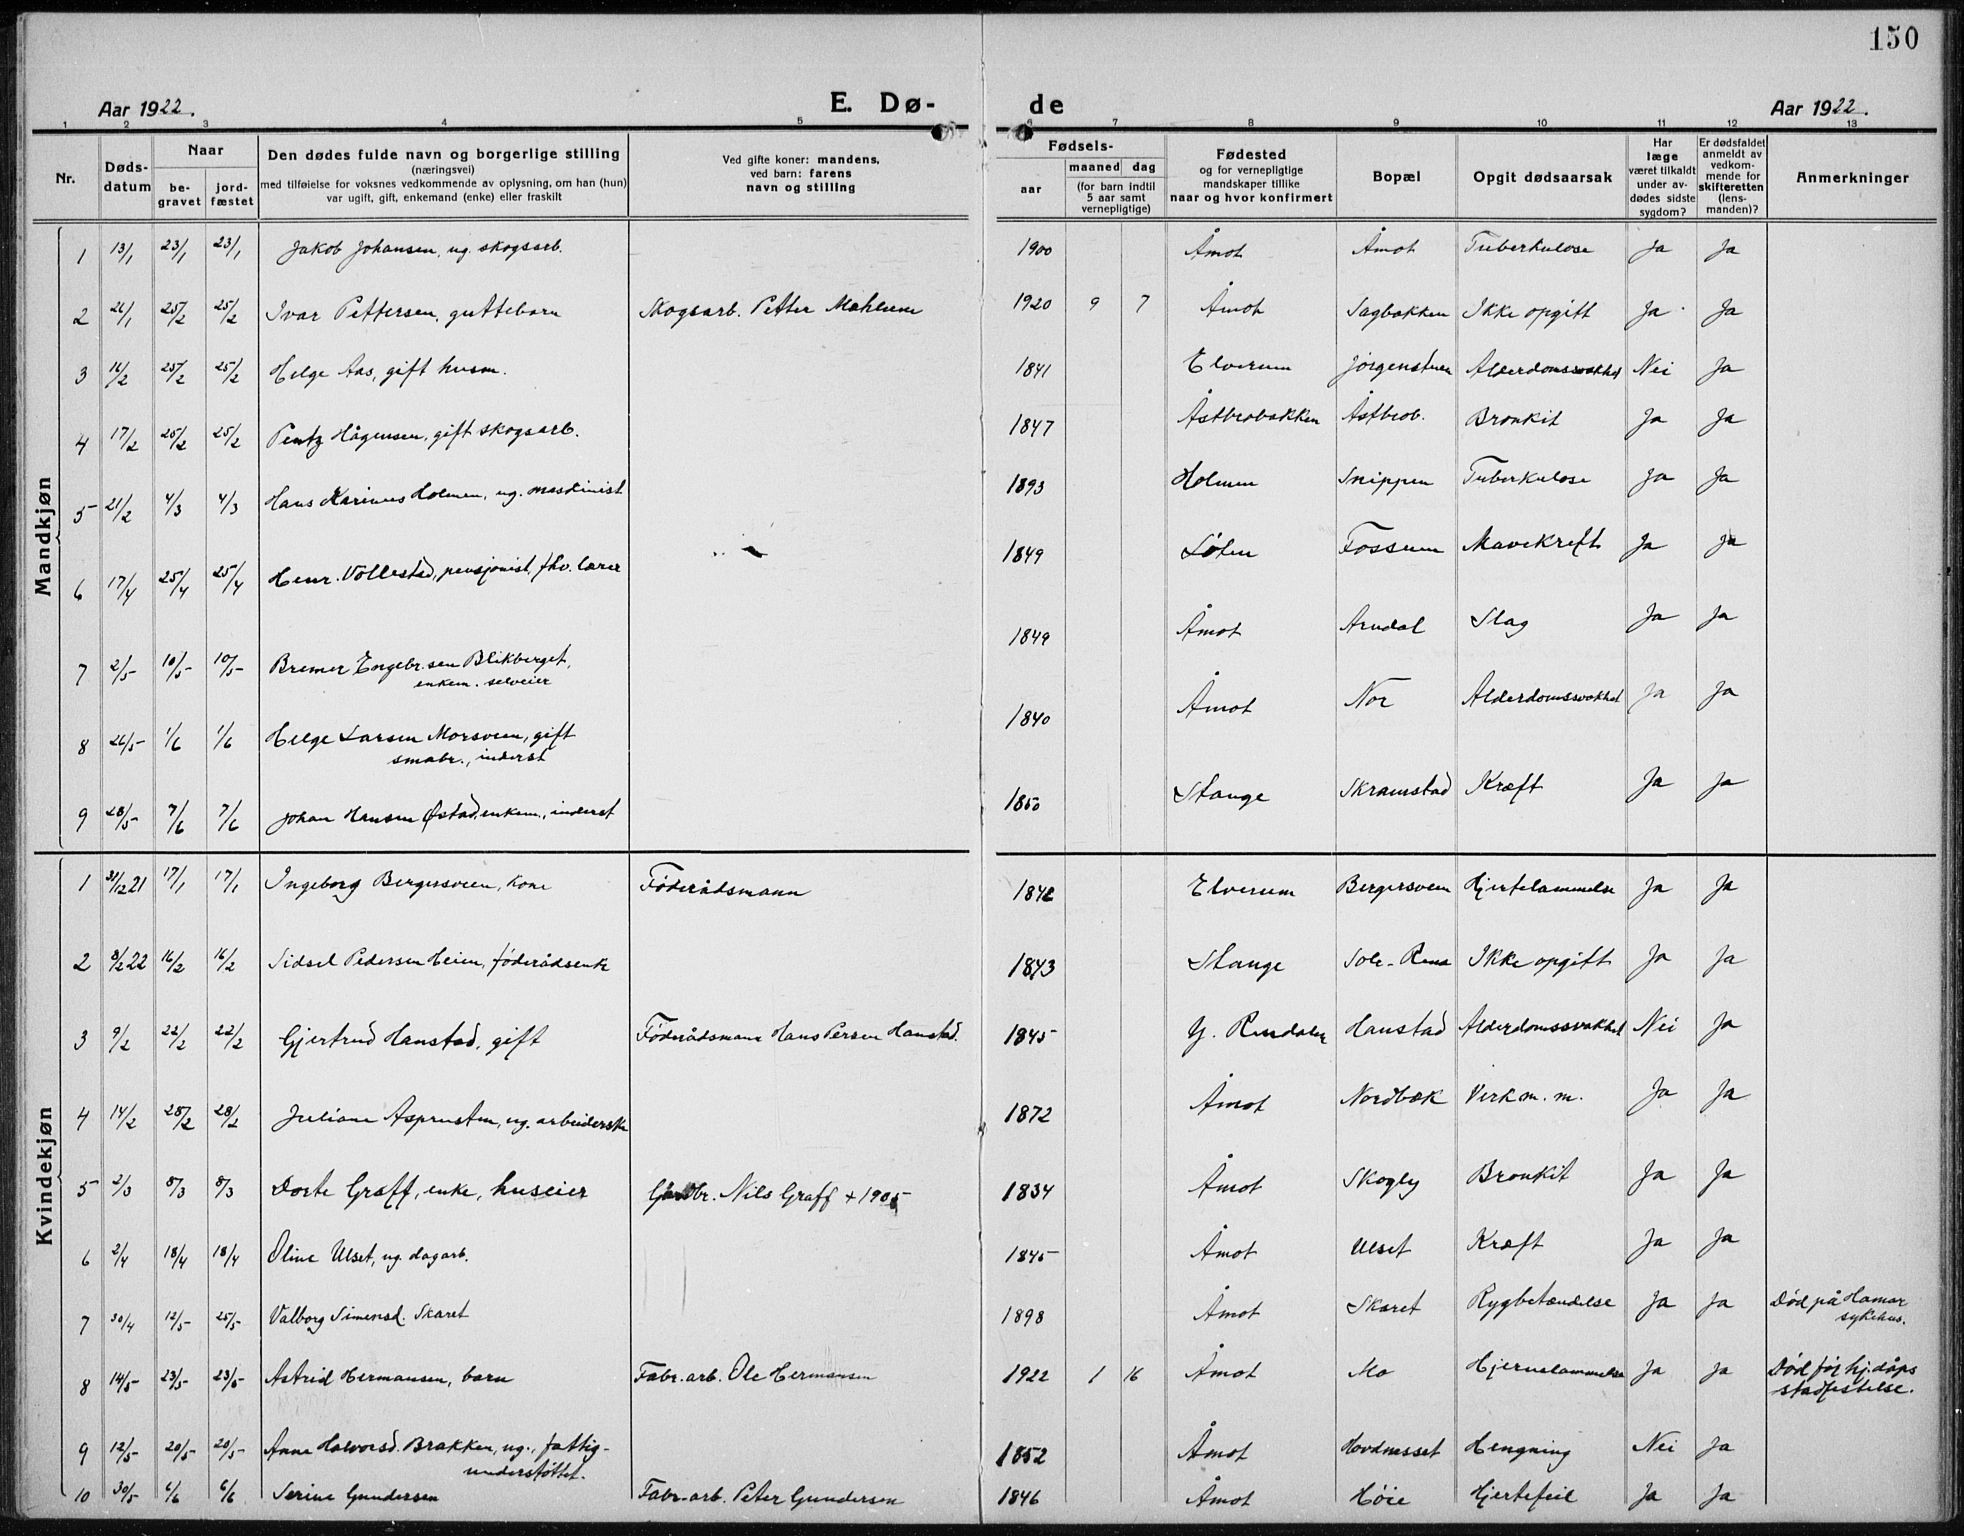 150
Aar 1922. E. Dø- de Aar 1922.
1 2 3 4 5 6 7 8 9 10 11 12 13
Nr. Døds-datum Naar be-gravet jord-fæstet Den dødes fulde navn og borgerlige stilling (næringsvei) med tilføielse for voksnes vedkommende av oplysning, om han (hun) var ugift, gift, enkemand (enke) eller fraskilt Ved gifte koner: mandens, ved barn: farens navn og stilling Fødsels- aar maaned dag (for barn indtil 5 aar samt vernepligtige) Fødested og for vernepligtige mandskaper tillike naar og hvor konfirmert Bopæl Opgit dødsaarsak Har læge været tilkaldt under av-dødes sidste sygdom? Er dødsfaldet anmeldt av vedkom-mende for skifteretten (lens-manden)? Anmerkninger
Mandkjøn
1 13/1 23/1 23/1 Jakob Johansen, ug. skogsarb. 1900 Åmot Åmot Tuberkulose Ja Ja
2 26/1 25/2 25/2 Ivar Pettersen, guttebarn Skogsarb. Petter Mæhlum 1920 9 7 Åmot Sagbakken Ikke opgitt Ja Ja
3 16/2 25/2 25/2 Helge Aas, gift husm. 1841 Elverum Jørgenstuen Alderdomssvakhet Nei Ja
4 17/2 25/2 25/2 Pentz Hågensen, gift skogsarb. 1847 Åstbrobakken Åstbrob. Bronkit Ja Ja
5 21/2 4/3 4/3 Hans Karinus Holmen, ug. maskinist 1893 Holmen Snippen Tuberkulose Ja Ja
6 17/4 25/4 25/4 Henr. Vollestad, pensjonist, fhv. lærer 1849 Løten Fossum Mavekreft Ja Ja
7 2/5 10/5 10/5 Bremer Engebr.sen Blikberget,
enkem. selveier 1849 Åmot Arndal Slag Ja Ja
8 26/5 1/6 1/6 Helge Larsen Morsveen, gift
småbr., inderst 1840 Åmot Nor Alderdomssvakhet Ja Ja
9 28/5 7/6 7/6 Johan Hansen Østad, enkem., inderst 1850 Stange Skramstad Kræft Ja Ja
Kvindekjøn
1 31/12 21 17/1 17/1 Ingeborg Bergersveen, kone Føderådsmann 1842 Elverum Bergersveen Hjertelammelse Ja Ja
2 8/2 22 16/2 16/2 Sidsel Pedersen Heien, føderådsenke 1843 Stange Sole-Rena Ikke opgitt Ja Ja
3 9/2 22/2 22/2 Gjertrud Hanstad, gift Føderådsmann Hans Persen Hanstad. 1845 Y. Rendalen Hanstad Alderdomssvakhet Nei Ja
4 14/2 28/2 28/2 Juliane Asprusten, ug. arbeiderske 1872 Åmot Nordbæk Virk m. m. Ja Ja
5 2/3 8/3 8/3 Dorte Græff, enke, huseier Gårdbr. Nils Græff + 1905 1834 Åmot Skogly Bronkit Ja Ja
6 2/4 18/4 18/4 Oline Ulset, ug. dagarb. 1845 Åmot Ulset Kræft Ja Ja
7 30/4 12/5 25/5 Valborg Simensd. Skaret 1898 Åmot Skaret Rygbetændelse Ja Ja Død på Hamar
sykehus.
8 14/5 23/5 23/5 Astrid Hermansen, barn Fabr.arb. Ole Hermansen 1922 1 16 Åmot Mo Hjernelammelse Ja Ja Død før hj.dåps
stadfestelse.
9 12/5 20/5 20/5 Anne Halvorsd. Brakken, ug., fattig-
understøttet. 1852 Åmot Hovdnesset Hengning Nei Ja
10 30/5 6/6 6/6 Serine Gundersen Fabr-arb. Peter Gundersen 1846 Åmot Høie Hjertefeil Ja Ja